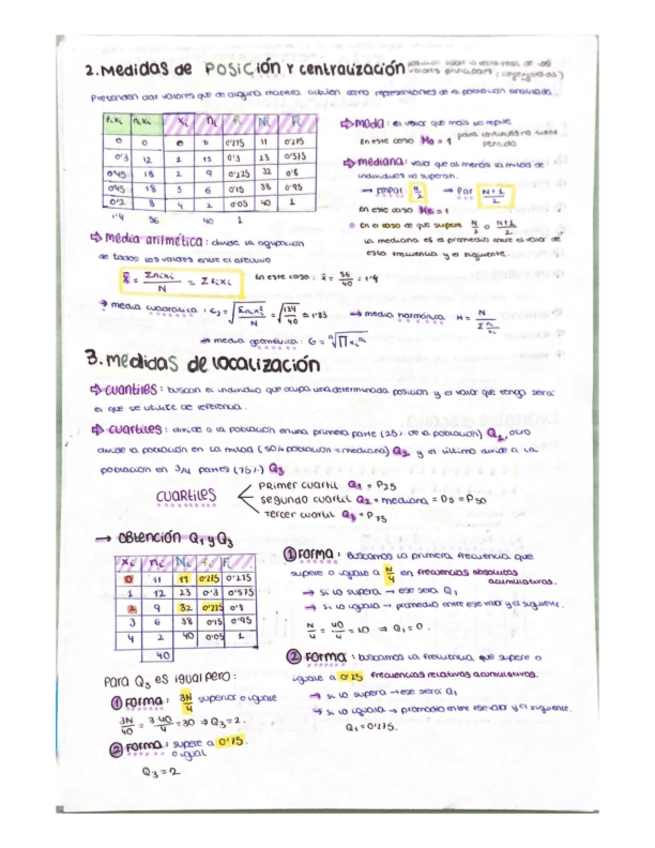 2. Medidas de POSICIÓN Y centralización
Pretenden dar valores que de alguna manera actúen como representantes de la población analizada.
fixi nixi xi ni fi Ni Fi
0 0 0 11 0'275 11 0'275
0'3 12 1 12 0'3 23 0'575
0'45 18 2 9 0'225 32 0'8
0'45 18 3 6 0'15 38 0'95
0'2 8 4 2 0'05 40 1
1'4 56 40 1
⇨ Moda: el valor que más se repite
En este caso Mo = 1 para continuas no tiene sentido
⇨ Mediana: valor que al menos la mitad de
individuos no superan.
→ impar N/2 → Par N+1/2
en este caso Me = 1
En el caso de que supere N/2 o N+1/2
la mediana es el promedio entre el valor de
esta frecuencia y el siguiente.
⇨ Media aritmética: divide la agrupación
de todos los valores entre el efectivo
x̄ = Σnixi/N = Σfixi En este caso: x̄ = 56/40 = 1'4
→ media cuadrática: C2 = √Σnixi²/N = √134/40 = 1'83 → media harmónica H = N/Σ ni/xi
→ media geométrica: G = ᴺ√∏ xi^ni
3. Medidas de localización
⇨ Cuantiles: buscan el individuo que ocupa una determinada posición y el valor que tenga será
el que se utilice de referencia.
⇨ Cuartiles: divide a la población en una primera parte (25% de la población) Q1, otro
divide la población en la mitad (50% población = mediana) Q2 y el último divide a la
población en 3/4 partes (75%) Q3
CUARTILES
Primer cuartil Q1 = P25
Segundo cuartil Q2 = mediana = D5 = P50
Tercer cuartil Q3 = P75
→ OBTENCIÓN Q1 y Q3
xi ni Ni fi Fi
0 11 11 0'275 0'275
1 12 23 0'3 0'575
2 9 32 0'225 0'8
3 6 38 0'15 0'95
4 2 40 0'05 1
40
① Forma: Buscamos la primera frecuencia que
supere o iguale a N/4 en frecuencias absolutas
acumulativas.
→ si lo supera → ese será Q1
→ Si lo iguala → promedio entre ese valor y el siguiente.
N/4 = 40/4 = 10 ⇒ Q1 = 0.
② Forma: buscamos la frecuencia que supere o
iguale a 0'25 frecuencias relativas acumulativas.
→ si lo supera → ese será Q1
→ si lo iguala → promedio entre ese valor y el siguiente.
Q1 = 0'275.
Para Q3 es igual pero:
① Forma: 3N/4 superior o iguale
3N/40 = 3·40/4 = 30 ⇒ Q3 = 2.
② Forma: supere a 0'75.
o igual
Q3 = 2